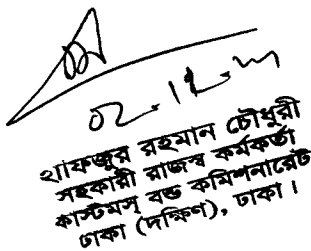 খাফজুর রহমান চৌধুরী
সহকারী রাজস্ব কর্মকর্তা
কাস্টমস্ বন্ড কমিশনারেট
ঢাকা (দক্ষিণ), ঢাকা।